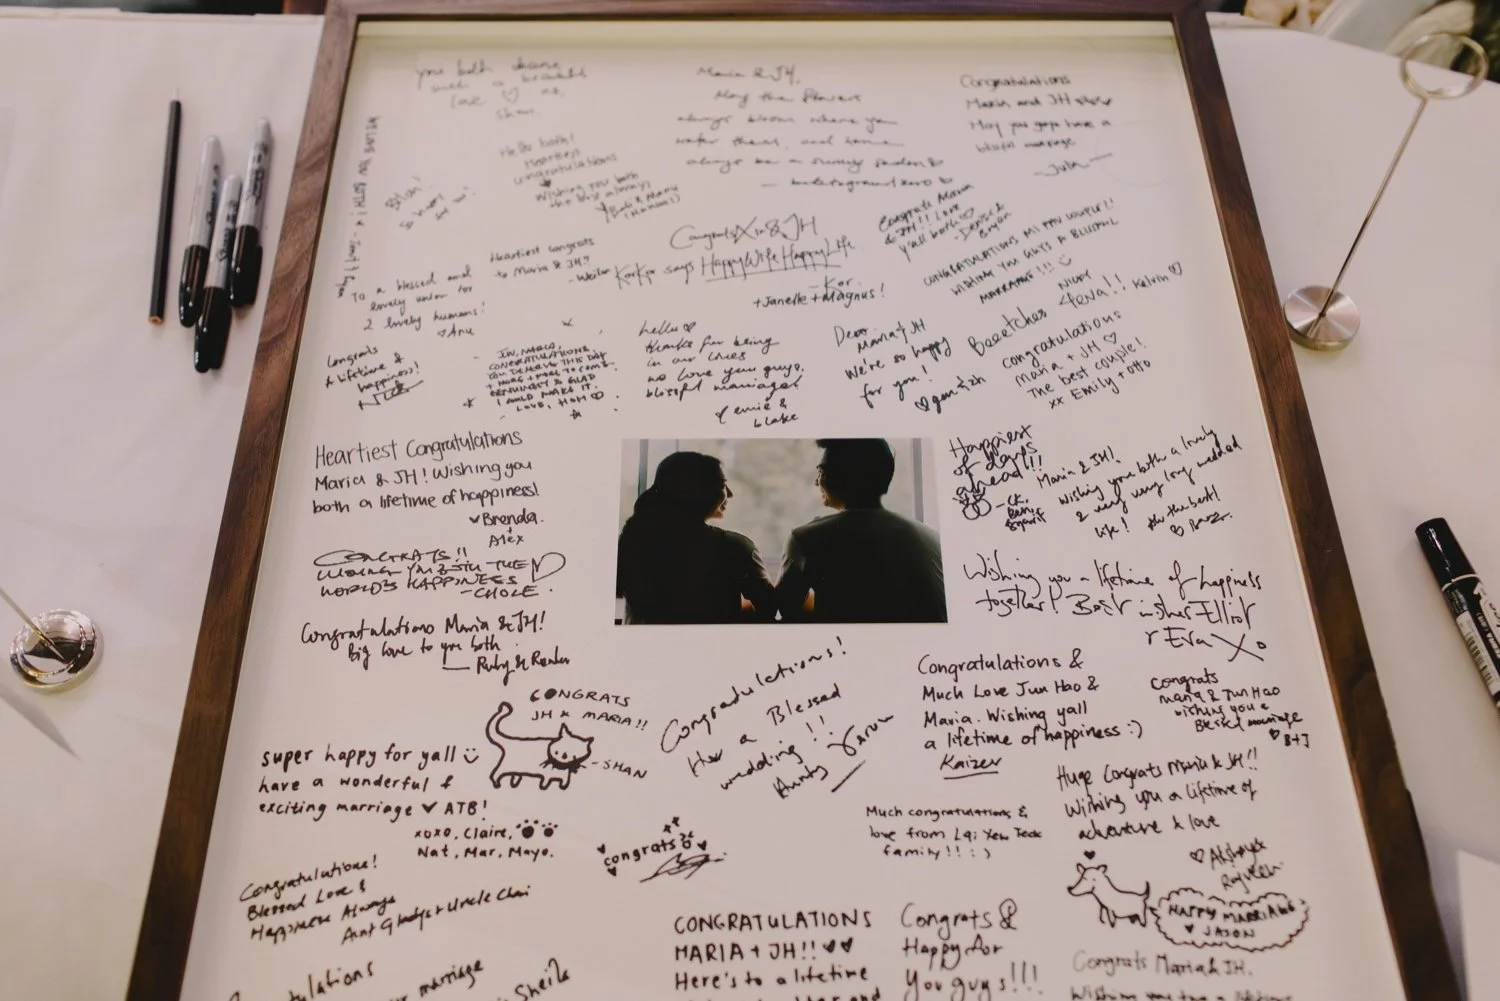 you both share
such a beautiful
love ♡
Shan
Maria & JH,
May the flowers
always bloom where you
water them, and home
always be a sunny garden
Congratulations
Maria and JH
May you guys have a
blissful marriage
- Julia
Hello both!
Heartiest
congratulations
Wishing you both
the best always
so happy
for you!
Congrats Maria
& JH!! Love
y'all both ♡
- Denise &
Bryan
CONGRATULATIONS MI FAV COUPLE!!
WISHING YOU GUYS A BLISSFUL
MARRIAGE!!!
Heartiest congrats
to Maria & JH!
Congrats Xin & JH
KorKor says Happy Wife Happy Life
- Kor
+ Janelle + Magnus!
To a blessed and
lovely union for
2 lovely humans!
♡ Anu
Congrats
& lifetime &
happiness!
Nick
JH, MARIA,
CONGRATULATIONS,
YOU DESERVE THIS DAY
+ MORE + MORE TO COME.
GENUINELY SO GLAD
I COULD MAKE IT.
LOVE, HOH ♡
hello ♡
thanks for being
in our lives
we love you guys.
blissful marriage!
blake
Dear
Maria + JH
We're so happy
for you!
Beeetches 4eva!!
Kelvin ♡
congratulations
maria + JH ♡
The best couple!
xx Emily + Otto
Heartiest Congratulations
Maria & JH! Wishing you
both a lifetime of happiness!
♥ Brenda
+
Alex
Happiest
of days
ahead!!
Maria & JH!
Wishing you both a lovely
& very very long wedded
life!
the best!
CONGRATS!!
WISHING YOU BOTH THE
WORLD'S HAPPINESS ♡
- CHLOE
Wishing you a lifetime of happiness
together! Best wishes Elliot
& Eva Xo
Congratulations Maria & JH!
Big love to you both
CONGRATS
JH x MARIA!!
- SHAN
Congratulations!
Have a Blessed
wedding!!
Aunty
Congratulations &
Much Love Jun Hao &
Maria. Wishing yall
a lifetime of happiness :)
Kaizer
Congrats
Maria & Jun Hao
wishing you a
Blessed marriage
♡ B+J
super happy for yall
have a wonderful &
exciting marriage ♥ ATB!
xoxo, Claire,
Nat, Mar, Mayo.
Huge Congrats Maria & JH!!
Wishing you a lifetime of
adventure & love
congrats
Much congratulations &
love from
family!! :)
Congratulations!
Blessed Love &
Happiness Always
Aunt Gladys + Uncle Chai
HAPPY MARRIAGE
♥ JASON
CONGRATULATIONS
MARIA + JH!! ♥♥
Here's to a lifetime
Congrats &
Happy for
You guys!!!
Congrats Maria & JH.
marriage
Sheila